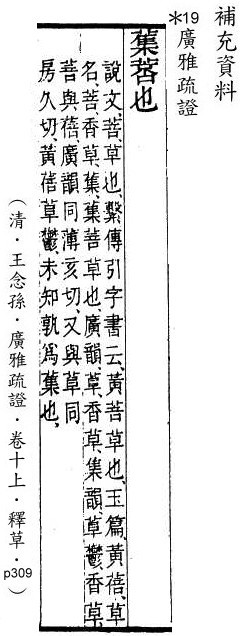 補充資料
*19廣雅疏證
䕆菩也
說文、菩、草也、繫傳引字書云、黃菩草也、玉篇、黃蓓、草
名、菩香草、䕆、䕆菩草也、廣韻、草、香草、集韻、草鬱香草、
菩與蓓、廣韻同薄亥切、又與草同
房久切、黃蓓草鬱、未知孰為䕆也、
（清・王念孫・廣雅疏證・卷十上・釋草・p309）